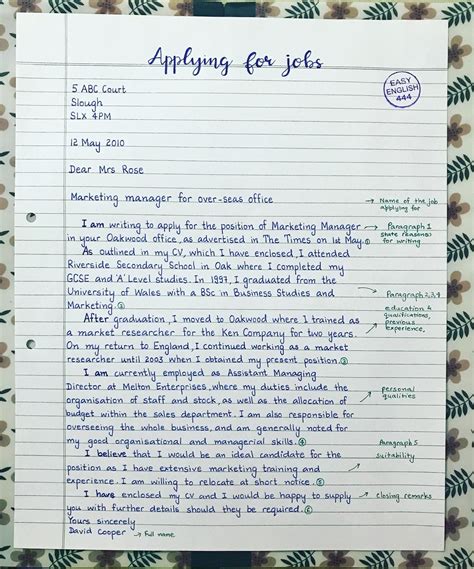 Applying for jobs
EASY
ENGLISH
444
5 ABC Court
Slough
SLX 4PM
12 May 2010
Dear Mrs Rose
Marketing manager for over-seas office
Name of the job
applying for
I am writing to apply for the position of Marketing Manager
in your Oakwood office, as advertised in The Times on 1st May. 1
Paragraph 1
state reason(s)
for writing
As outlined in my CV, which I have enclosed, I attended
Riverside Secondary School in Oak where I completed my
GCSE and 'A' Level studies. In 1997, I graduated from the
University of Wales with a BSc in Business Studies and
Marketing. 2
Paragraph 2,3,4
education &
qualifications,
previous
experience,
After graduation, I moved to Oakwood where I trained as
a market researcher for the Ken Company for two years.
On my return to England, I continued working as a market
researcher until 2003 when I obtained my present position. 3
I am currently employed as Assistant Managing
Director at Melton Enterprises, where my duties include the
organisation of staff and stock, as well as the allocation of
budget within the sales department. I am also responsible for
overseeing the whole business, and am generally noted for
my good organisational and managerial skills. 4
personal
qualities
I believe that I would be an ideal candidate for the
position as I have extensive marketing training and
experience. I am willing to relocate at short notice. 5
Paragraph 5
suitability
I have enclosed my CV and I would be happy to supply
you with further details should they be required. 6
closing remarks
Yours sincerely
David Cooper
Full name